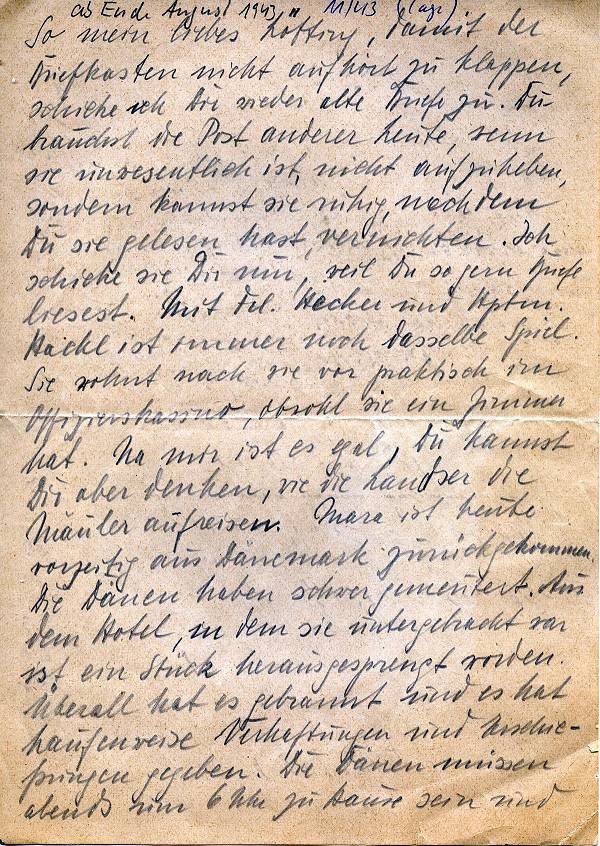 ab Ende August 1943 " 11/43
So mein liebes, damit der
Briefkasten nicht aufhört zu klappen,
schicke ich Dir wieder alte Briefe zu. Du
brauchst die Post anderer heute, wenn
sie unwesentlich ist, nicht aufzuheben,
sondern kannst sie ruhig, nachdem
Du sie gelesen hast, vernichten. Ich
schicke sie Dir nur, weil Du so gern Briefe
liesest. Mit Frl. Hecker und Hptm.
Hackl ist immer noch dasselbe Spiel.
Sie wohnt nach wie vor praktisch im
Offizierskassino, obwohl sie ein Zimmer
hat. Na mir ist es egal, Du kannst
Dir aber denken, wie die Landser die
Mäuler aufreisen. Mara ist heute
vorzeitig aus Dänemark zurückgekommen.
Die Dänen haben schwer gemeutert. Aus
dem Hotel, in dem sie untergebracht war
ist ein Stück herausgesprengt worden.
Überall hat es gebrannt und es hat
haufenweise Verhaftungen und Erschie-
ßungen gegeben. Die Dänen müssen
abends um 6 Uhr zu Hause sein und